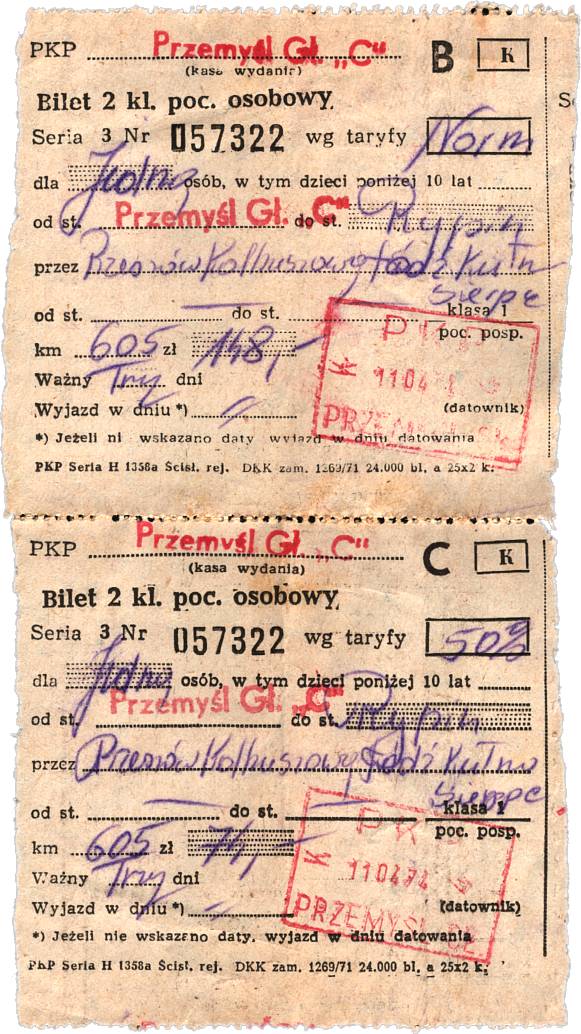 PKP Przemyśl Gł. „C" B K
(kasa wydania)
Bilet 2 kl. poc. osobowy
Seria 3 Nr 057322 wg taryfy Norm
dla Jedną osób, w tym dzieci poniżej 10 lat
od st. Przemyśl Gł. „C" do st. Rypin
przez Rzeszów Kolbuszowę Łódź Kutn
Sierpc
od st. do st. klasa 1
poc. posp.
km 605 zł 148,-
Ważny Trzy dni
Wyjazd w dniu *) (datownik)
PRZEMYŚL
*) Jeżeli ni wskazano daty wyjazd w dniu datowania
PKP Seria H 1358a Ścisł. rej. DKK zam. 1269/71 24.000 bl, a 25x2 k.
PKP Przemyśl Gł. „C" C K
(kasa wydania)
Bilet 2 kl. poc. osobowy
Seria 3 Nr 057322 wg taryfy 50%
dla Jedną osób, w tym dzieci poniżej 10 lat
od st. Przemyśl Gł. „C" do st. Rypin
przez Rzeszów Kolbuszowę Łódź Kutno
Sierpc
od st. do st. klasa 1
poc. posp.
km 605 zł 74,-
K 110474
Ważny Trzy dni
Wyjazd w dniu *) (datownik)
PRZEMYŚL GŁ.
*) Jeżeli nie wskazano daty, wyjazd w dniu datowania
PKP Seria H 1358a Ścisł. rej. DKK zam. 1269/71 24.000 bl, a 25x2 k.